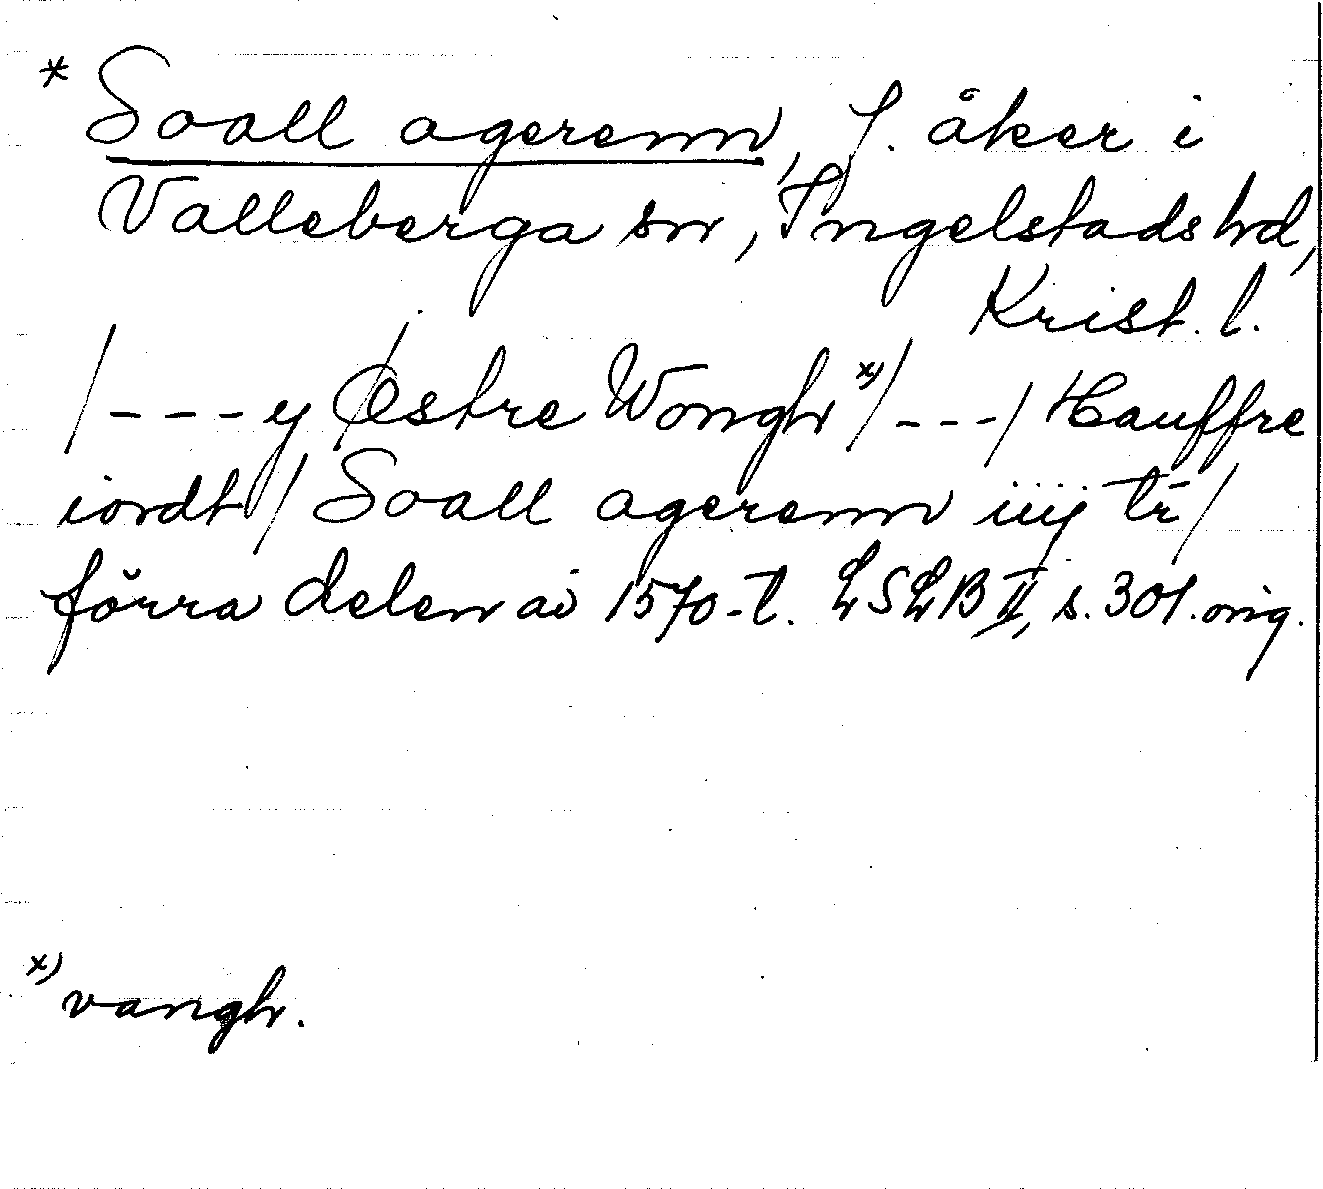 * Soall agerenn, f. åker i
Valleberga sn, Ingelstads hd,
Krist. l.
/ - - - y Østre Wongh x) / - - - / Hauffre
iordt / Soall agerenn iiij tr /
förra delen av 1570-t. LSLB II, s. 301. orig.
x) vangh.